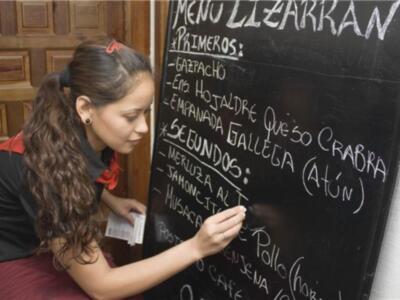 MENU LIZARRAN
*PRIMEROS:
- GAZPACHO
- ENS. HOJALDRE QUESO CRABRA
- EMPANADA GALLEGA (ATÚN)
*SEGUNDOS:
- MERLUZA AL
- JAMONCIT POLLO (hor
- MUSACA ENJENA (
POST CAFE